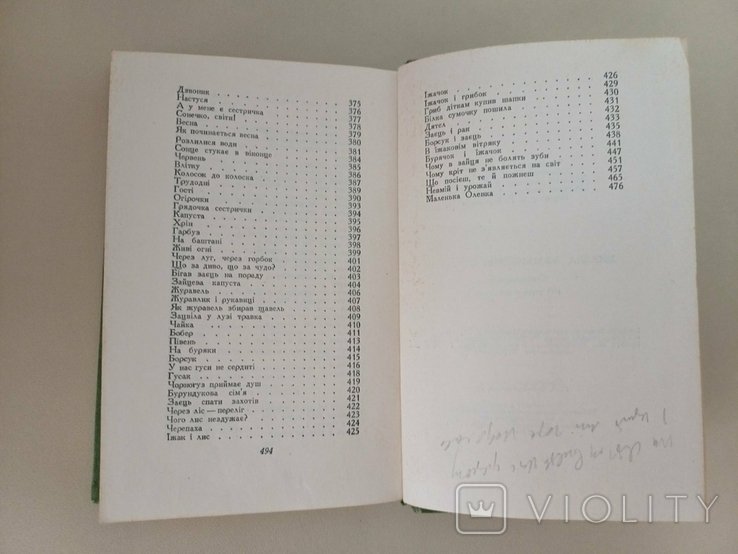 Дзвоник 375
Настуся 376
А у мене є сестричка 377
Сонечко, світи! 378
Весна 379
Як починається весна 380
Розлилися води 381
Сонце стукає в віконце 384
Червень 385
Влітку 386
Колосок до колоска 387
Трудодні 389
Гості 390
Огірочки 393
Грядочка сестрички 394
Капуста 395
Хрін 396
Гарбуз 397
На баштані 398
Живі огні 399
Через луг, через горбок 401
Що за диво, що за чудо? 402
Бігав заєць на пораду 403
Зайцева капуста 404
Журавель 406
Журавлик і рукавиці 407
Як журавель збирав щавель 408
Зацвіла у лузі травка 409
Чайка 410
Бобер 411
Півень 413
На буряки 414
Борсук 415
У нас гуси не сердиті 416
Гусак 418
Чорногуз приймає душ 419
Бурундукова сім'я 420
Заєць спати захотів 421
Через ліс — переліг 422
Чого лис нездужає? 423
Черепаха 424
Їжак і лис 425
494
Їжачок 426
Їжачок і грибок 429
Гриб діткам купив шапки 430
Білка сумочку пошила 431
Дятел 432
Заєць і рак 433
Борсук і заєць 435
В їжаковім вітряку 438
Бурячок і їжачок 441
Чому в зайця не болять зуби 447
Чому кріт не з'являється на світ 451
Що посієш, те й пожнеш 457
Невмій і урожай 465
Маленька Оленка 476
VIOLITY